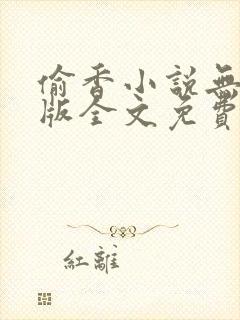 偷香小說無
版全文免費
紅離